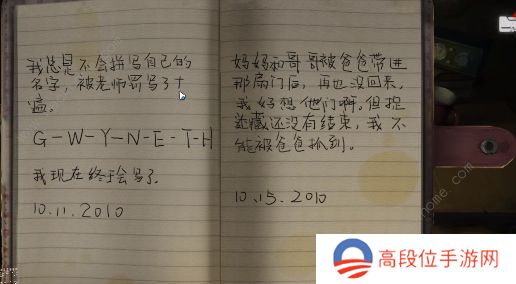 我总是不会拼写自己的
名字，被老师罚写了十
遍。
G-W-Y-N-E-T-H
我现在终于会写了。
10.11.2010
妈妈和哥哥被爸爸带进
那扇门后，再也没回来，
我好想他们啊。但捉
迷藏还没有结束，我不
能被爸爸抓到。
10.15.2010
高段位手游网